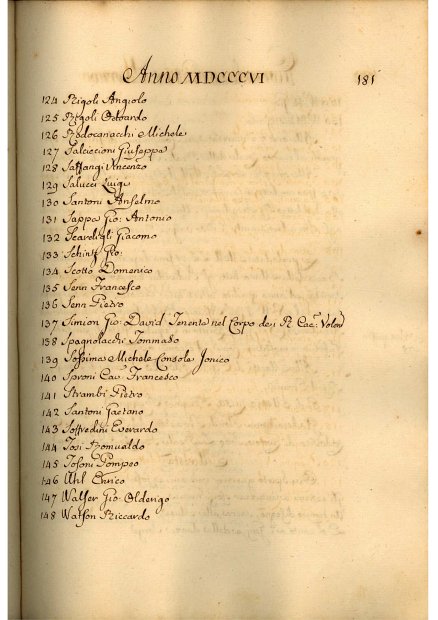 Anno MDCCCVI 181
124 Rigoli Angiolo
125 Rigoli Odoardo
126 Rodocanacchi Michele
127 Salciccioni Giuseppe
128 Vincenzo
129 Salucci Luigi
130 Santoni Anselmo
131 Sappa Gio: Antonio
132 Giacomo
133 Schintz Gio:
134 Scotto Domenico
135 Senn Francesco
136 Senn Pietro
137 Simion Gio: David Tenente nel Corpo dei R
138 Spagnolacchi Tommaso
139 Michele Console Jonico
140 Sproni Cav: Francesco
141 Strambi Pietro
142 Santoni Gaetano
143 Soffredini Everardo
144 Tosi Romualdo
145 Tosoni Pompeo
146 Uhl Enrico
147 Walser Gio: Olderigo
148 Watson Riccardo